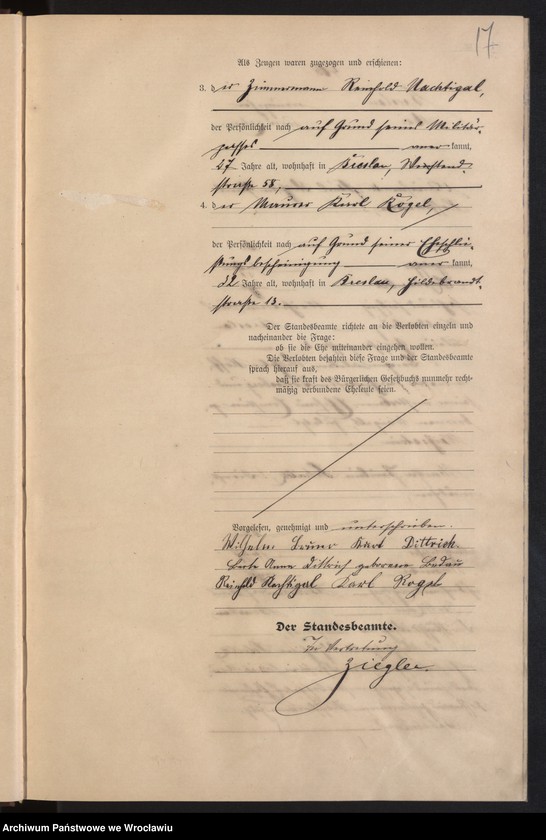 17
Als Zeugen waren zugezogen und erschienen:
3. der Zimmermann Reinhold Nachtigal,
der Persönlichkeit nach auf Grund seines Militär-
passes kannt,
27 Jahre alt, wohnhaft in Breslau,
straße 58,
4. der Maurer Karl Kogel,
der Persönlichkeit nach auf Grund seiner Eheschlie-
ßungsbescheinigung kannt,
32 Jahre alt, wohnhaft in Breslau, Hildebrandt-
straße 13.
Der Standesbeamte richtete an die Verlobten einzeln und
nacheinander die Frage:
ob sie die Ehe miteinander eingehen wollen.
Die Verlobten bejahten diese Frage und der Standesbeamte
sprach hierauf aus,
daß sie kraft des Bürgerlichen Gesetzbuchs nunmehr recht-
mäßig verbundene Eheleute seien.
Vorgelesen, genehmigt und unterschrieben.
Wilhelm Bruno Karl Dittrich.
Anna Dittrich geborene
Reinhold Nachtigal Karl Kogel
Der Standesbeamte.
In Vertretung
Ziegler.
Archiwum Państwowe we Wrocławiu